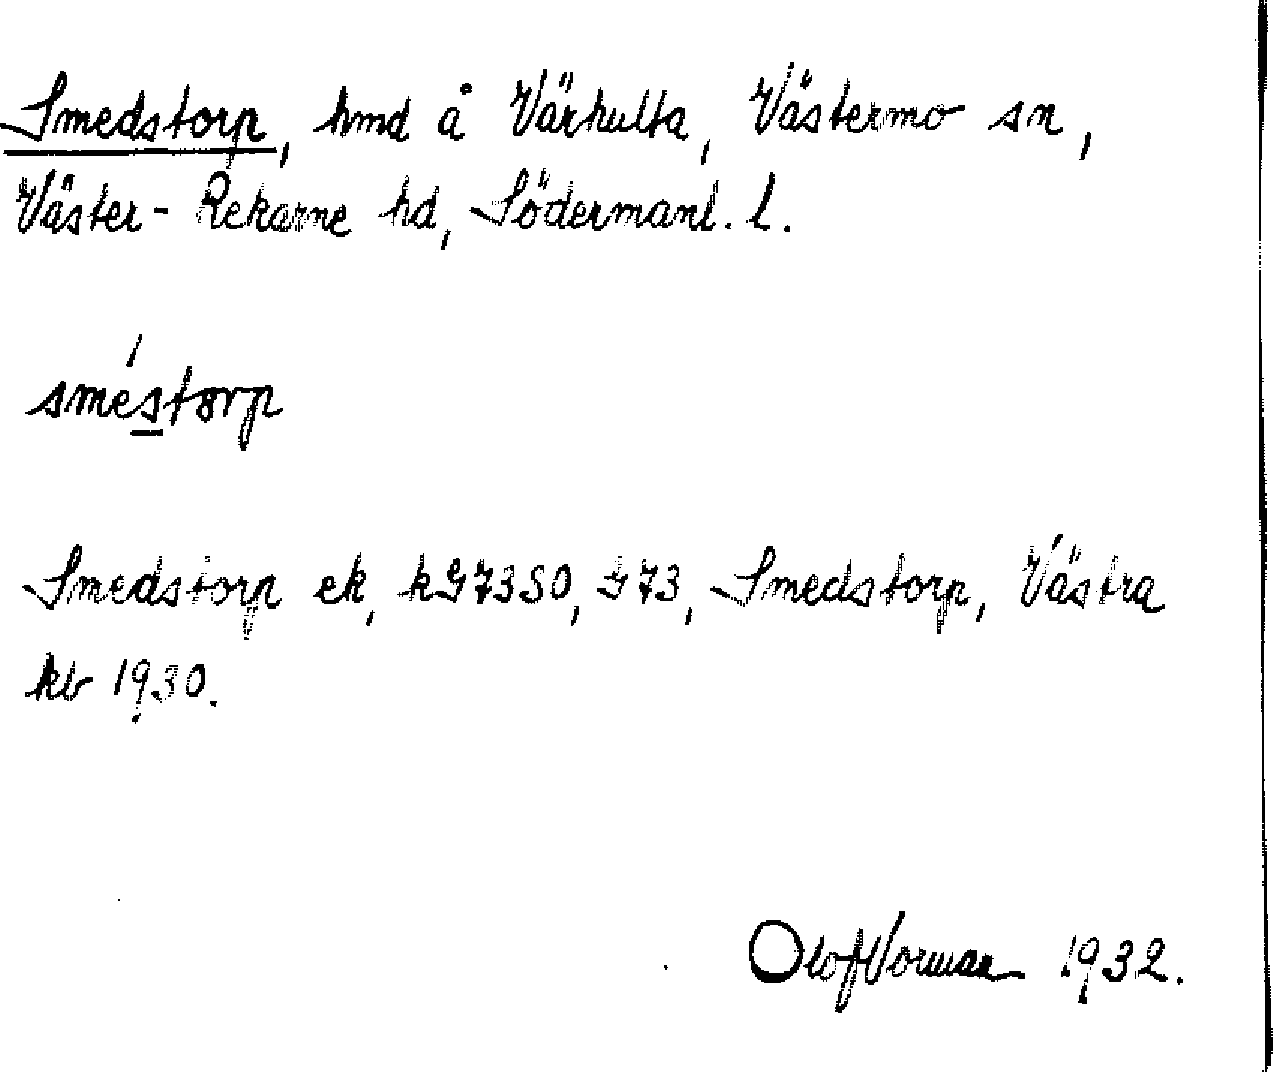 Smedstorp, hmd å Värhulta, Västermo sn,
Väster-Rekarne hd, Södermanl. l.
sméstorp
Smedstorp ek, kG7350, G73, Smedstorp, Västra
kb 1930.
Olof Norman 1932.